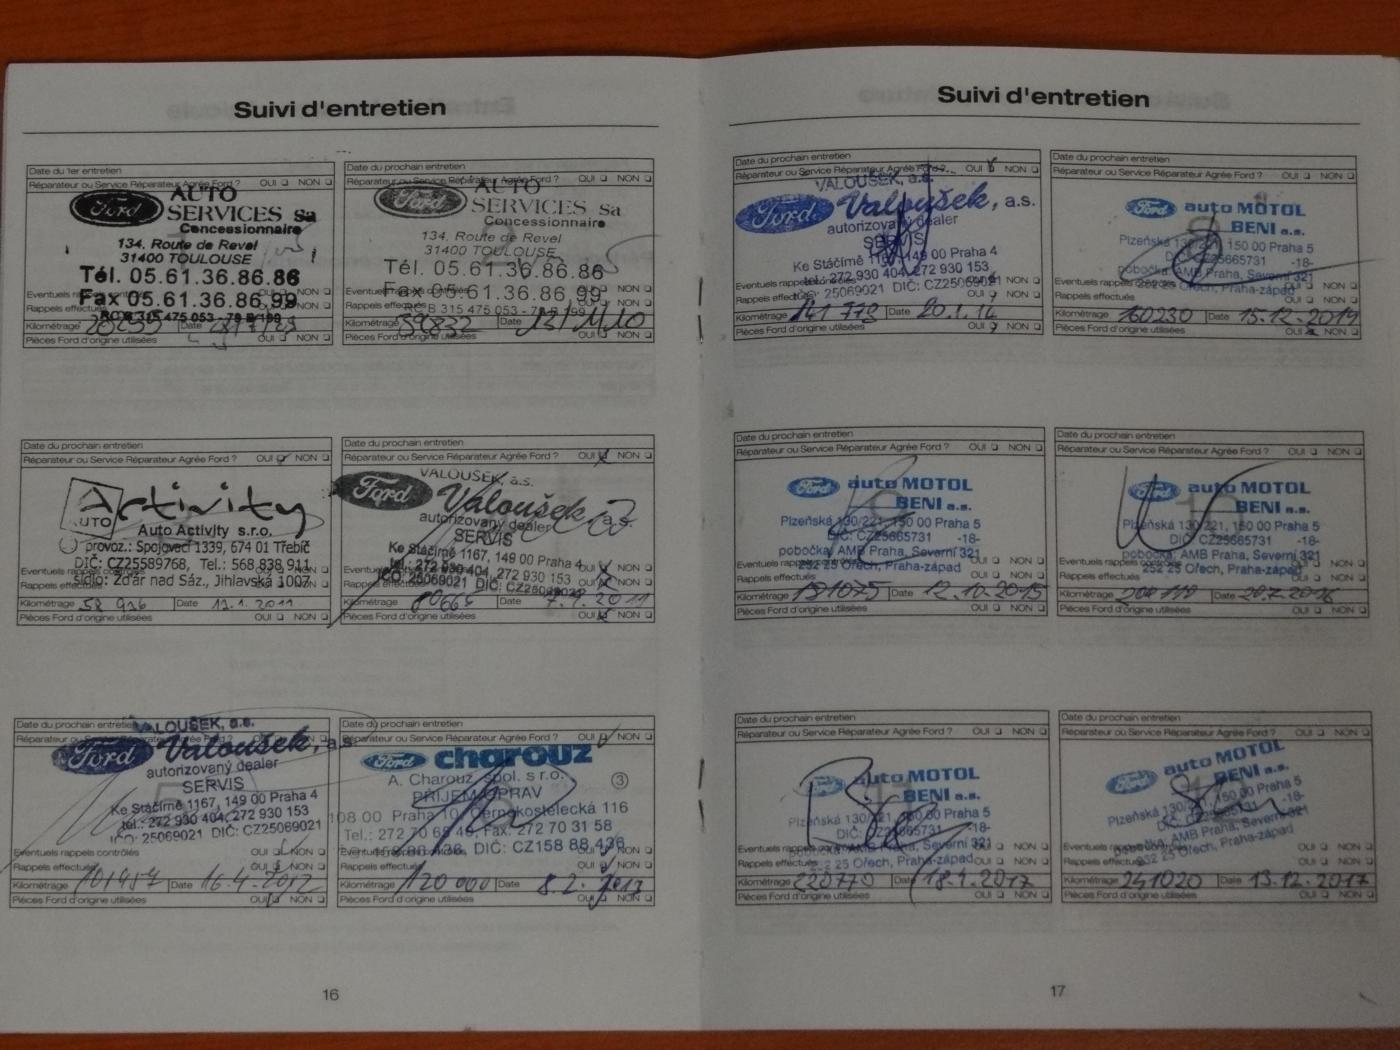 Suivi d'entretien
Date du 1er entretien
Réparateur ou Service Réparateur Agrée Ford ? OUI NON
Ford AUTO
SERVICES sa
Concessionnaire
134, Route de Revel
31400 TOULOUSE
Tél. 05.61.36.86.86
Fax 05.61.36.86.99
RC B 315 475 053 - 79 B 199
Eventuels rappels
Rappels effectués
Kilométrage Date
Pièces Ford d'origine utilisées OUI NON
Date du prochain entretien
Réparateur ou Service Réparateur Agrée Ford ? OUI NON
Ford AUTO
SERVICES sa
Concessionnaire
134, Route de Revel
31400 TOULOUSE
Tél. 05.61.36.86.86
Fax 05.61.36.86.99
RC B 315 475 053 - 79 B 199
Eventuels rappels NON
Rappels effectués NON
Kilométrage Date 13/11/10
Pièces Ford d'origine utilisées OUI NON
Date du prochain entretien
Réparateur ou Service Réparateur Agrée Ford ? OUI NON
Activity
AUTO
Auto Activity s.r.o.
provoz.: Spojovací 1339, 674 01 Třebíč
DIČ: CZ25589768, Tel.: 568 838 911
sídlo: Žďár nad Sáz., Jihlavská 1007
Eventuels rappels contrôlés OUI NON
Rappels effectués
Kilométrage 58 926 Date 12.1.2011
Pièces Ford d'origine utilisées OUI NON
Date du prochain entretien
Réparateur ou Service Réparateur Agrée Ford ? OUI NON
VALOUŠEK, a.s.
Ford Valoušek a.s.
autorizovaný dealer
SERVIS
Ke Stáčírně 1167, 149 00 Praha 4
tel.: 272 930 404, 272 930 153
IČO: 25069021 DIČ: CZ25069021
Eventuels rappels NON
Rappels effectués NON
Kilométrage 80665 Date 2011
Pièces Ford d'origine utilisées OUI NON
Date du prochain entretien
Réparateur ou Service Réparateur Agrée Ford ? OUI NON
VALOUŠEK, a.s.
Ford Valoušek, a.s.
autorizovaný dealer
SERVIS
Ke Stáčírně 1167, 149 00 Praha 4
tel.: 272 930 404, 272 930 153
IČO: 25069021 DIČ: CZ25069021
Eventuels rappels contrôlés OUI NON
Rappels effectués OUI NON
Kilométrage 101457 Date 16.4.2012
Pièces Ford d'origine utilisées OUI NON
Date du prochain entretien
Réparateur ou Service Réparateur Agrée Ford ? OUI NON
Ford charouz
A. Charouz, spol. s r.o. 3
PŘÍJEM OPRAV
108 00 Praha 10, Černokostelecká 116
Tel.: 272 70 68 49, Fax: 272 70 31 58
DIČ: CZ158 88 436
Rappels effectués OUI NON
Kilométrage 120 000 Date 8.2.2013
Pièces Ford d'origine utilisées OUI NON
16
Suivi d'entretien
Date du prochain entretien
Réparateur ou Service Réparateur Agrée Ford OUI NON
VALOUŠEK, a.s.
Ford Valoušek, a.s.
autorizovaný dealer
SERVIS
Ke Stáčírně 1167, 149 00 Praha 4
tel.: 272 930 404, 272 930 153
IČO: 25069021 DIČ: CZ25069021
Eventuels rappels NON
Rappels effectués OUI NON
Kilométrage 141 779 Date 20.1.14
Pièces Ford d'origine utilisées OUI NON
Date du prochain entretien
Réparateur ou Service Réparateur Agrée Ford ? OUI NON
Ford auto MOTOL
BENI a.s.
Plzeňská 130/221, 150 00 Praha 5
DIČ: CZ25665731 -18-
pobočka: AMB Praha, Severní 321
252 25 Ořech, Praha-západ
Eventuels rappels OUI NON
Rappels effectués OUI NON
Kilométrage 160230 Date 15.12.2014
Pièces Ford d'origine utilisées OUI NON
Date du prochain entretien
Réparateur ou Service Réparateur Agrée Ford ? OUI NON
Ford auto MOTOL
BENI a.s.
Plzeňská 130/221, 150 00 Praha 5
DIČ: CZ25665731 -18-
pobočka: AMB Praha, Severní 321
252 25 Ořech, Praha-západ
Eventuels rappels OUI NON
Rappels effectués OUI NON
Kilométrage 181075 Date 12.10.2015
Pièces Ford d'origine utilisées OUI NON
Date du prochain entretien
Réparateur ou Service Réparateur Agrée Ford ? OUI NON
Ford auto MOTOL
BENI a.s.
Plzeňská 130/221, 150 00 Praha 5
DIČ: CZ25665731 -18-
pobočka: AMB Praha, Severní 321
252 25 Ořech, Praha-západ
Eventuels rappels OUI NON
Rappels effectués OUI NON
Kilométrage Date 20.7.2016
Pièces Ford d'origine utilisées OUI NON
Date du prochain entretien
Réparateur ou Service Réparateur Agrée Ford ? OUI NON
Ford auto MOTOL
BENI a.s.
Plzeňská 130/221, 150 00 Praha 5
DIČ: CZ25665731 -18-
pobočka: AMB Praha, Severní 321
252 25 Ořech, Praha-západ
Eventuels rappels OUI NON
Rappels effectués OUI NON
Kilométrage 220770 Date 18.4.2017
Pièces Ford d'origine utilisées OUI NON
Date du prochain entretien
Réparateur ou Service Réparateur Agrée Ford ? OUI NON
Ford auto MOTOL
BENI a.s.
Plzeňská 130/221, 150 00 Praha 5
DIČ: CZ25665731 -18-
pobočka: AMB Praha, Severní 321
252 25 Ořech, Praha-západ
Eventuels rappels OUI NON
Rappels effectués OUI NON
Kilométrage 241020 Date 13.12.2017
Pièces Ford d'origine utilisées OUI NON
17